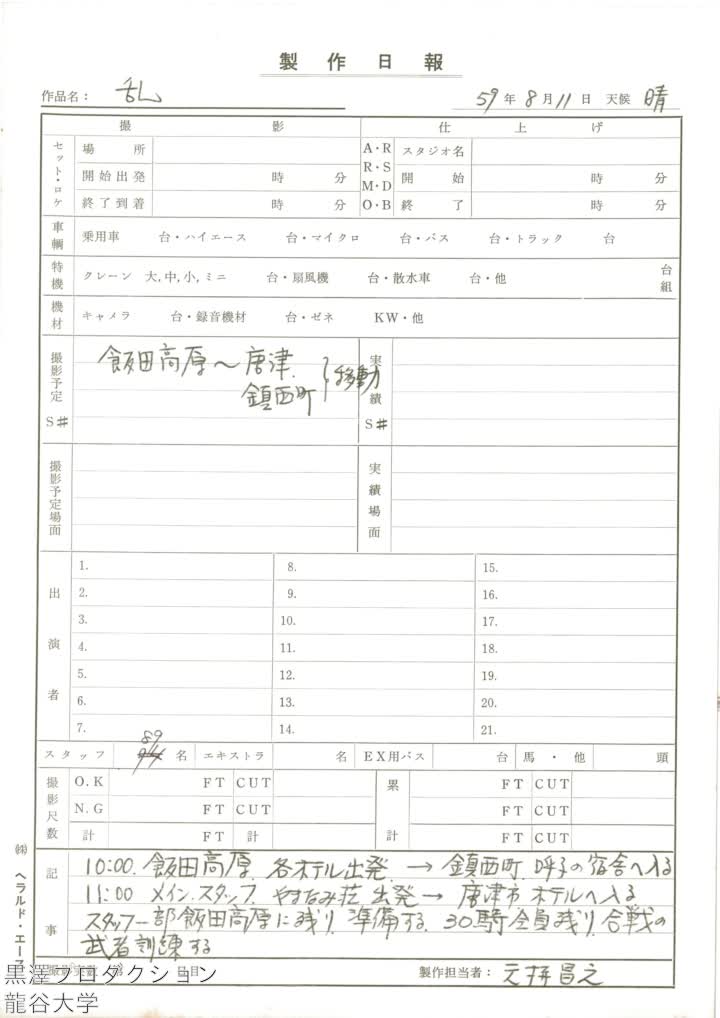 製作日報
作品名： 乱 59年8月11日 天候 晴
撮影 仕上げ
セット・ロケ 場所 A・R スタジオ名
開始出発 時 分 R・S M・D 開始 時 分
終了到着 時 分 O・B 終了 時 分
車輌 乗用車 台・ハイエース 台・マイクロ 台・バス 台・トラック 台
特機 クレーン 大,中,小,ミニ 台・扇風機 台・散水車 台・他 台組
機材 キャメラ 台・録音機材 台・ゼネ KW・他
撮影予定 S# 飯田高原〜唐津. 移動 実績 S#
鎮西町
撮影予定場面 実績場面
出演者
1. 8. 15.
2. 9. 16.
3. 10. 17.
4. 11. 18.
5. 12. 19.
6. 13. 20.
7. 14. 21.
スタッフ 89 名 エキストラ 名 EX用バス 台 馬・他 頭
撮影尺数 O.K FT CUT 累計 FT CUT
N.G FT CUT FT CUT
計 FT 計 FT CUT
記事
10:00. 飯田高原. 各ホテル出発. → 鎮西町. 呼子の宿舎へ入る
11:00 メイン.スタッフ. やすなみ荘 出発→ 唐津市 ホテルへ入る
スタッフ一部飯田高原に残り 準備する. 30騎全員残り. 合戦の
武者訓練する
撮影実数 第 日目 製作担当者： 元持昌之
㈱ ヘラルド・エース
黒澤プロダクション
龍谷大学